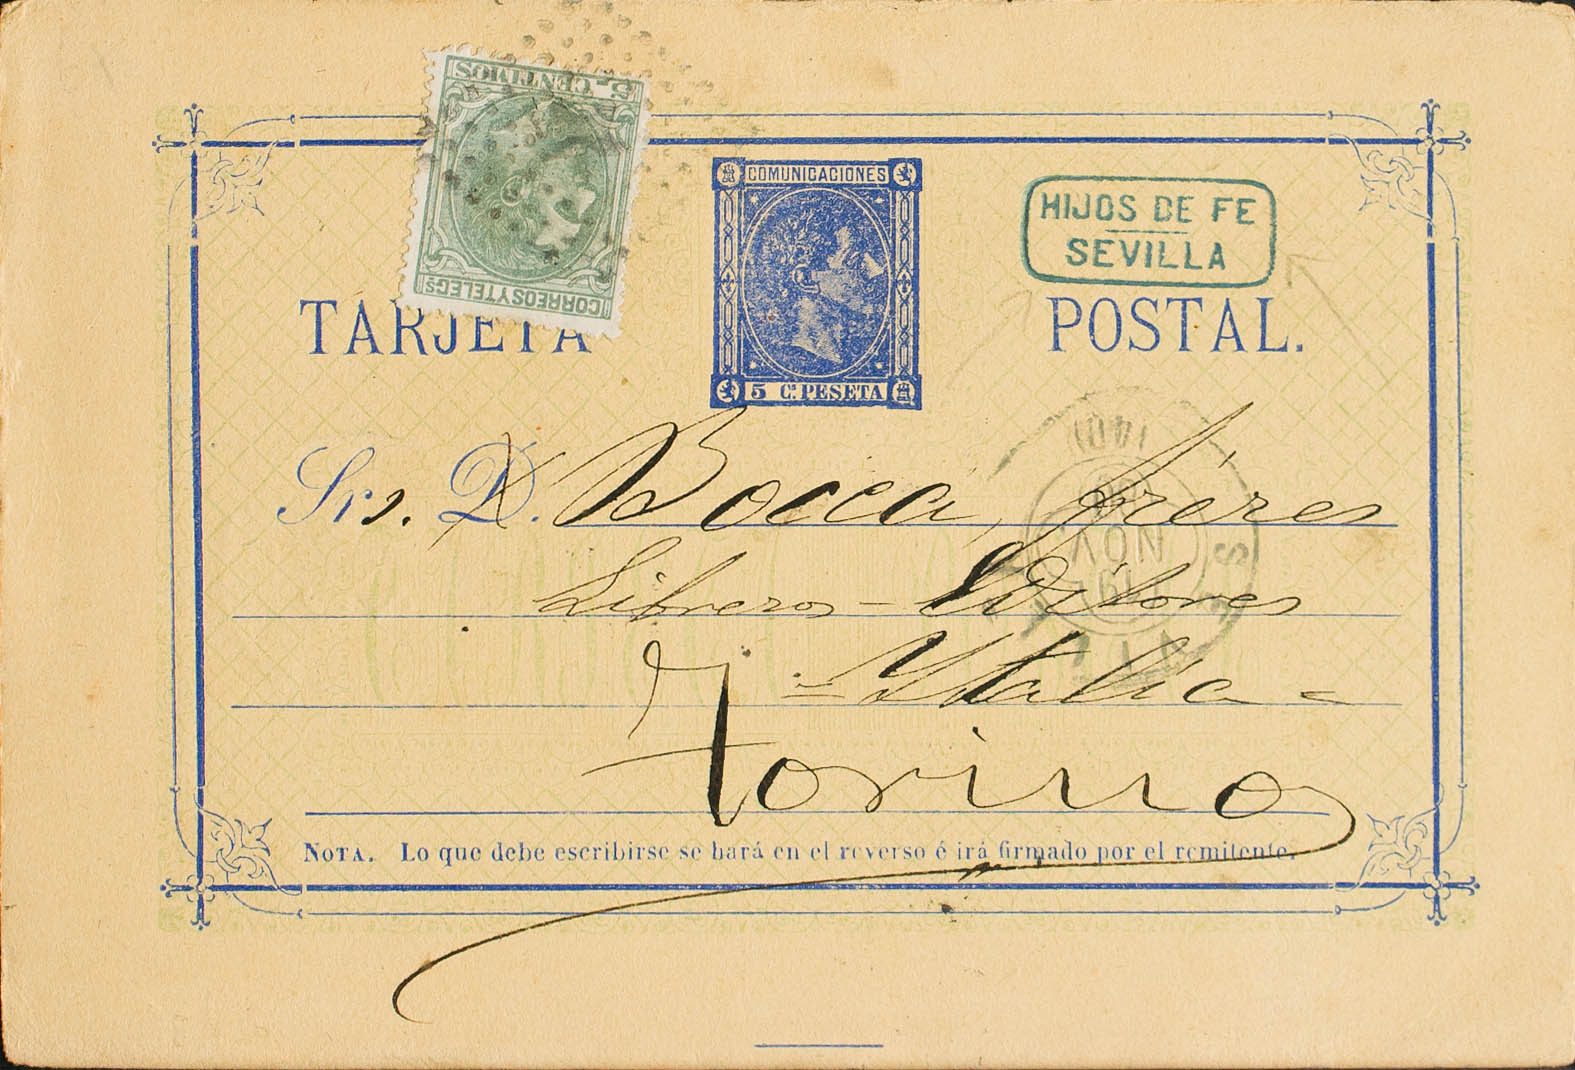 5 CENTIMOS
CORREOS Y TELEGS
COMUNICACIONES
5 Cs. PESETA
HIJOS DE FE
SEVILLA
TARJETA POSTAL.
Srs. D. Bocca, frères
Libreros - Editores
= Ytalia =
Torino
NOTA. Lo que debe escribirse se hará en el reverso é irá firmado por el remitente.
NOV